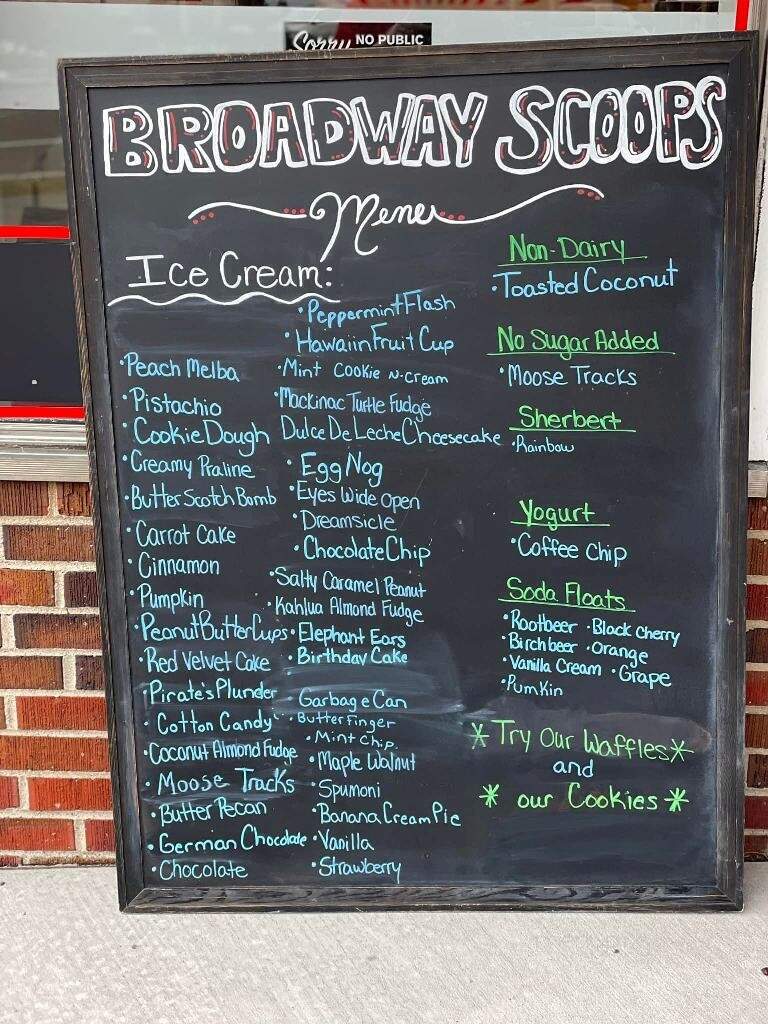 Sorry NO PUBLIC
BROADWAY SCOOPS
Menu
Ice Cream:
• Peach Melba
• Pistachio
• Cookie Dough
• Creamy Praline
• Butter Scotch Bomb
• Carrot Cake
• Cinnamon
• Pumpkin
• Peanut Butter Cups
• Red Velvet Cake
• Pirate's Plunder
• Cotton Candy
• Coconut Almond Fudge
• Moose Tracks
• Butter Pecan
• German Chocolate
• Chocolate
• Peppermint Flash
• Hawaiin Fruit Cup
• Mint Cookie N-Cream
• Mackinac Turtle Fudge
Dulce De Leche Cheesecake
• Egg Nog
• Eyes Wide Open
• Dreamsicle
• Chocolate Chip
• Salty Caramel Peanut
• Kahlua Almond Fudge
• Elephant Ears
• Birthday Cake
Garbage Can
• Butterfinger
• Mint Chip.
• Maple Walnut
• Spumoni
• Banana Cream Pie
• Vanilla
• Strawberry
Non-Dairy
• Toasted Coconut
No Sugar Added
• Moose Tracks
Sherbert
• Rainbow
Yogurt
• Coffee Chip
Soda Floats
• Rootbeer • Black Cherry
• Birchbeer • Orange
• Vanilla Cream • Grape
• Pumkin
* Try Our Waffles *
and
* our Cookies *